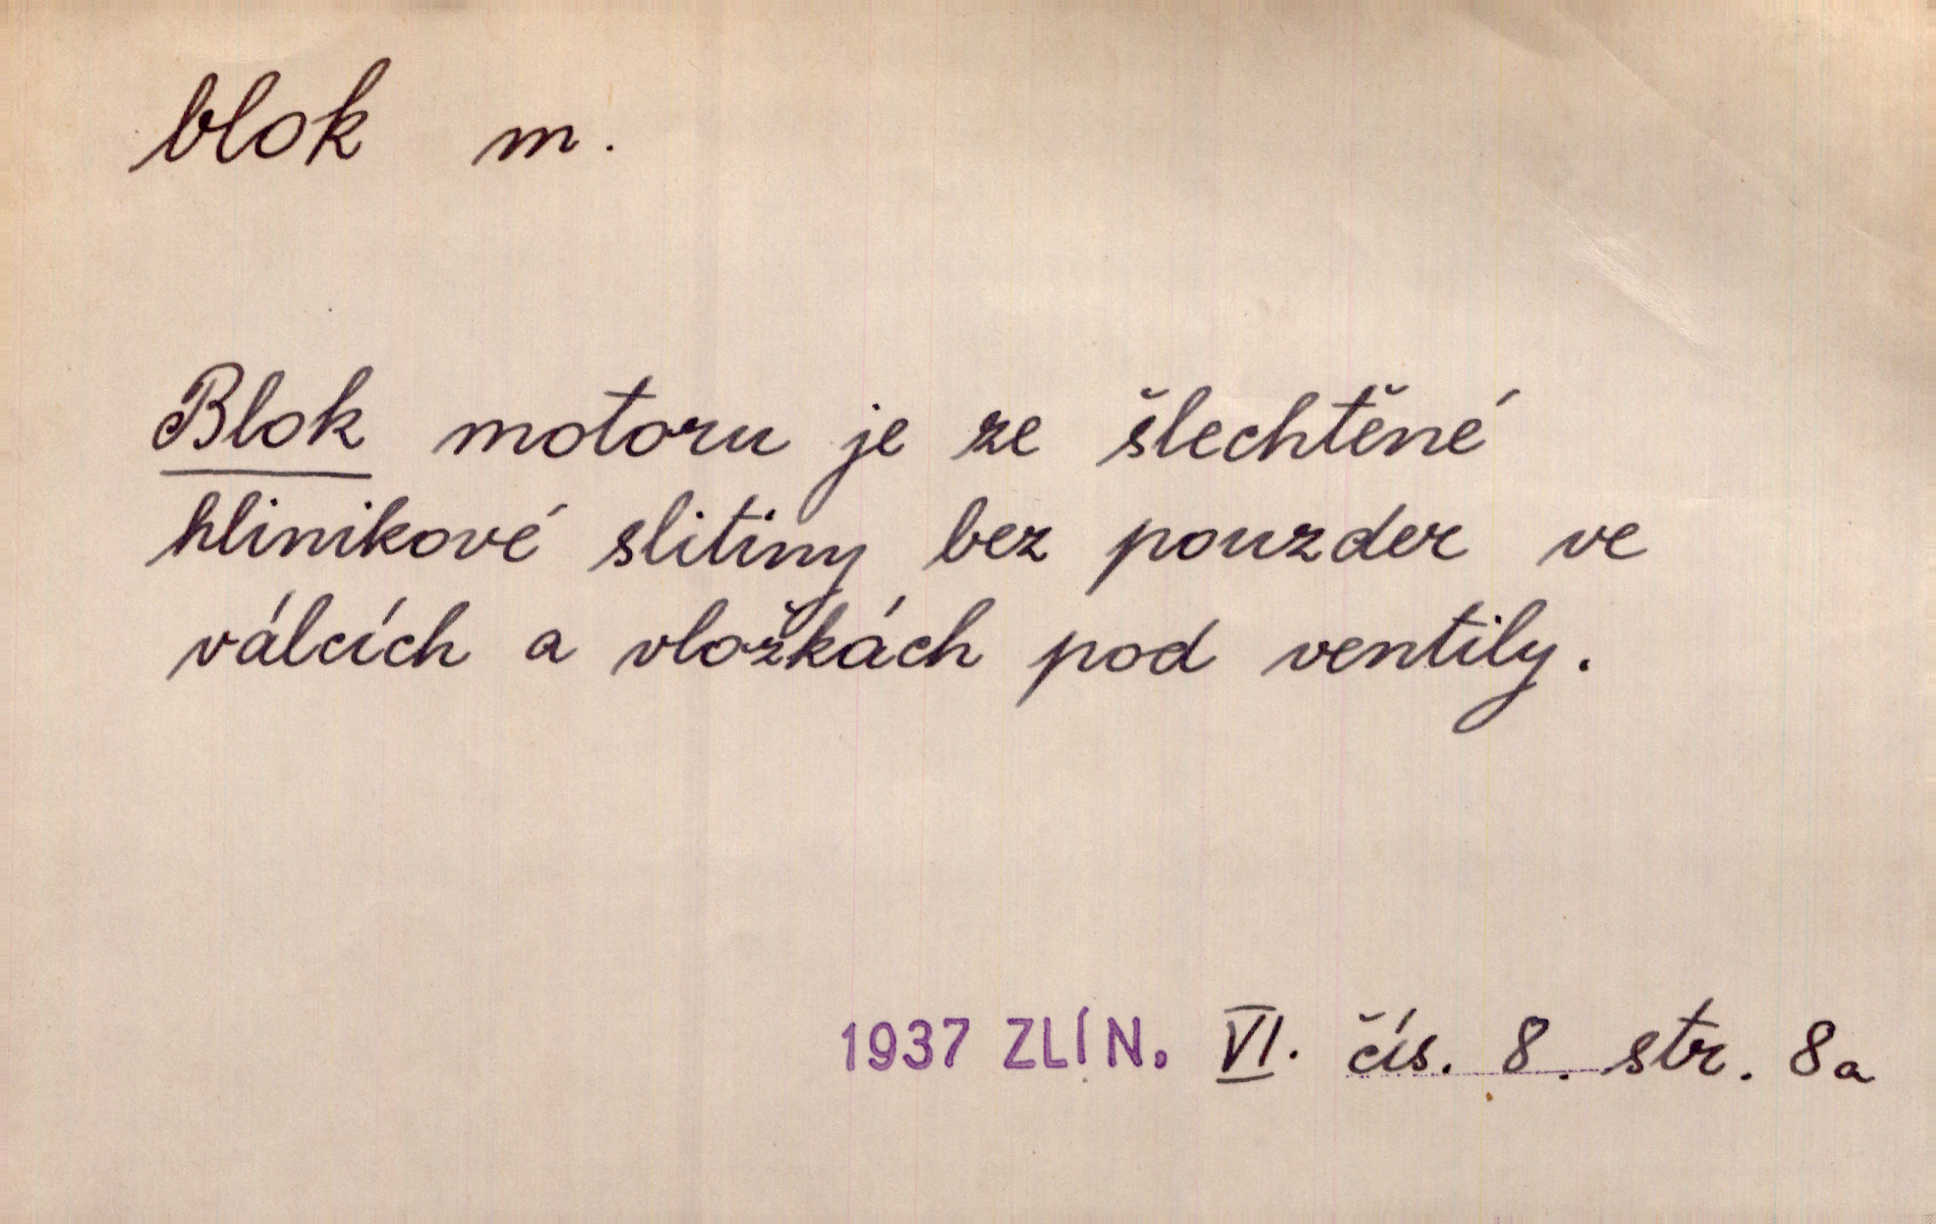 blok m.
Blok motoru je ze šlechtěné
hlinikové slitiny bez pouzder ve
válcích a vložkách pod ventily.
1937 ZLÍN. VI. čís. 8. str. 8a